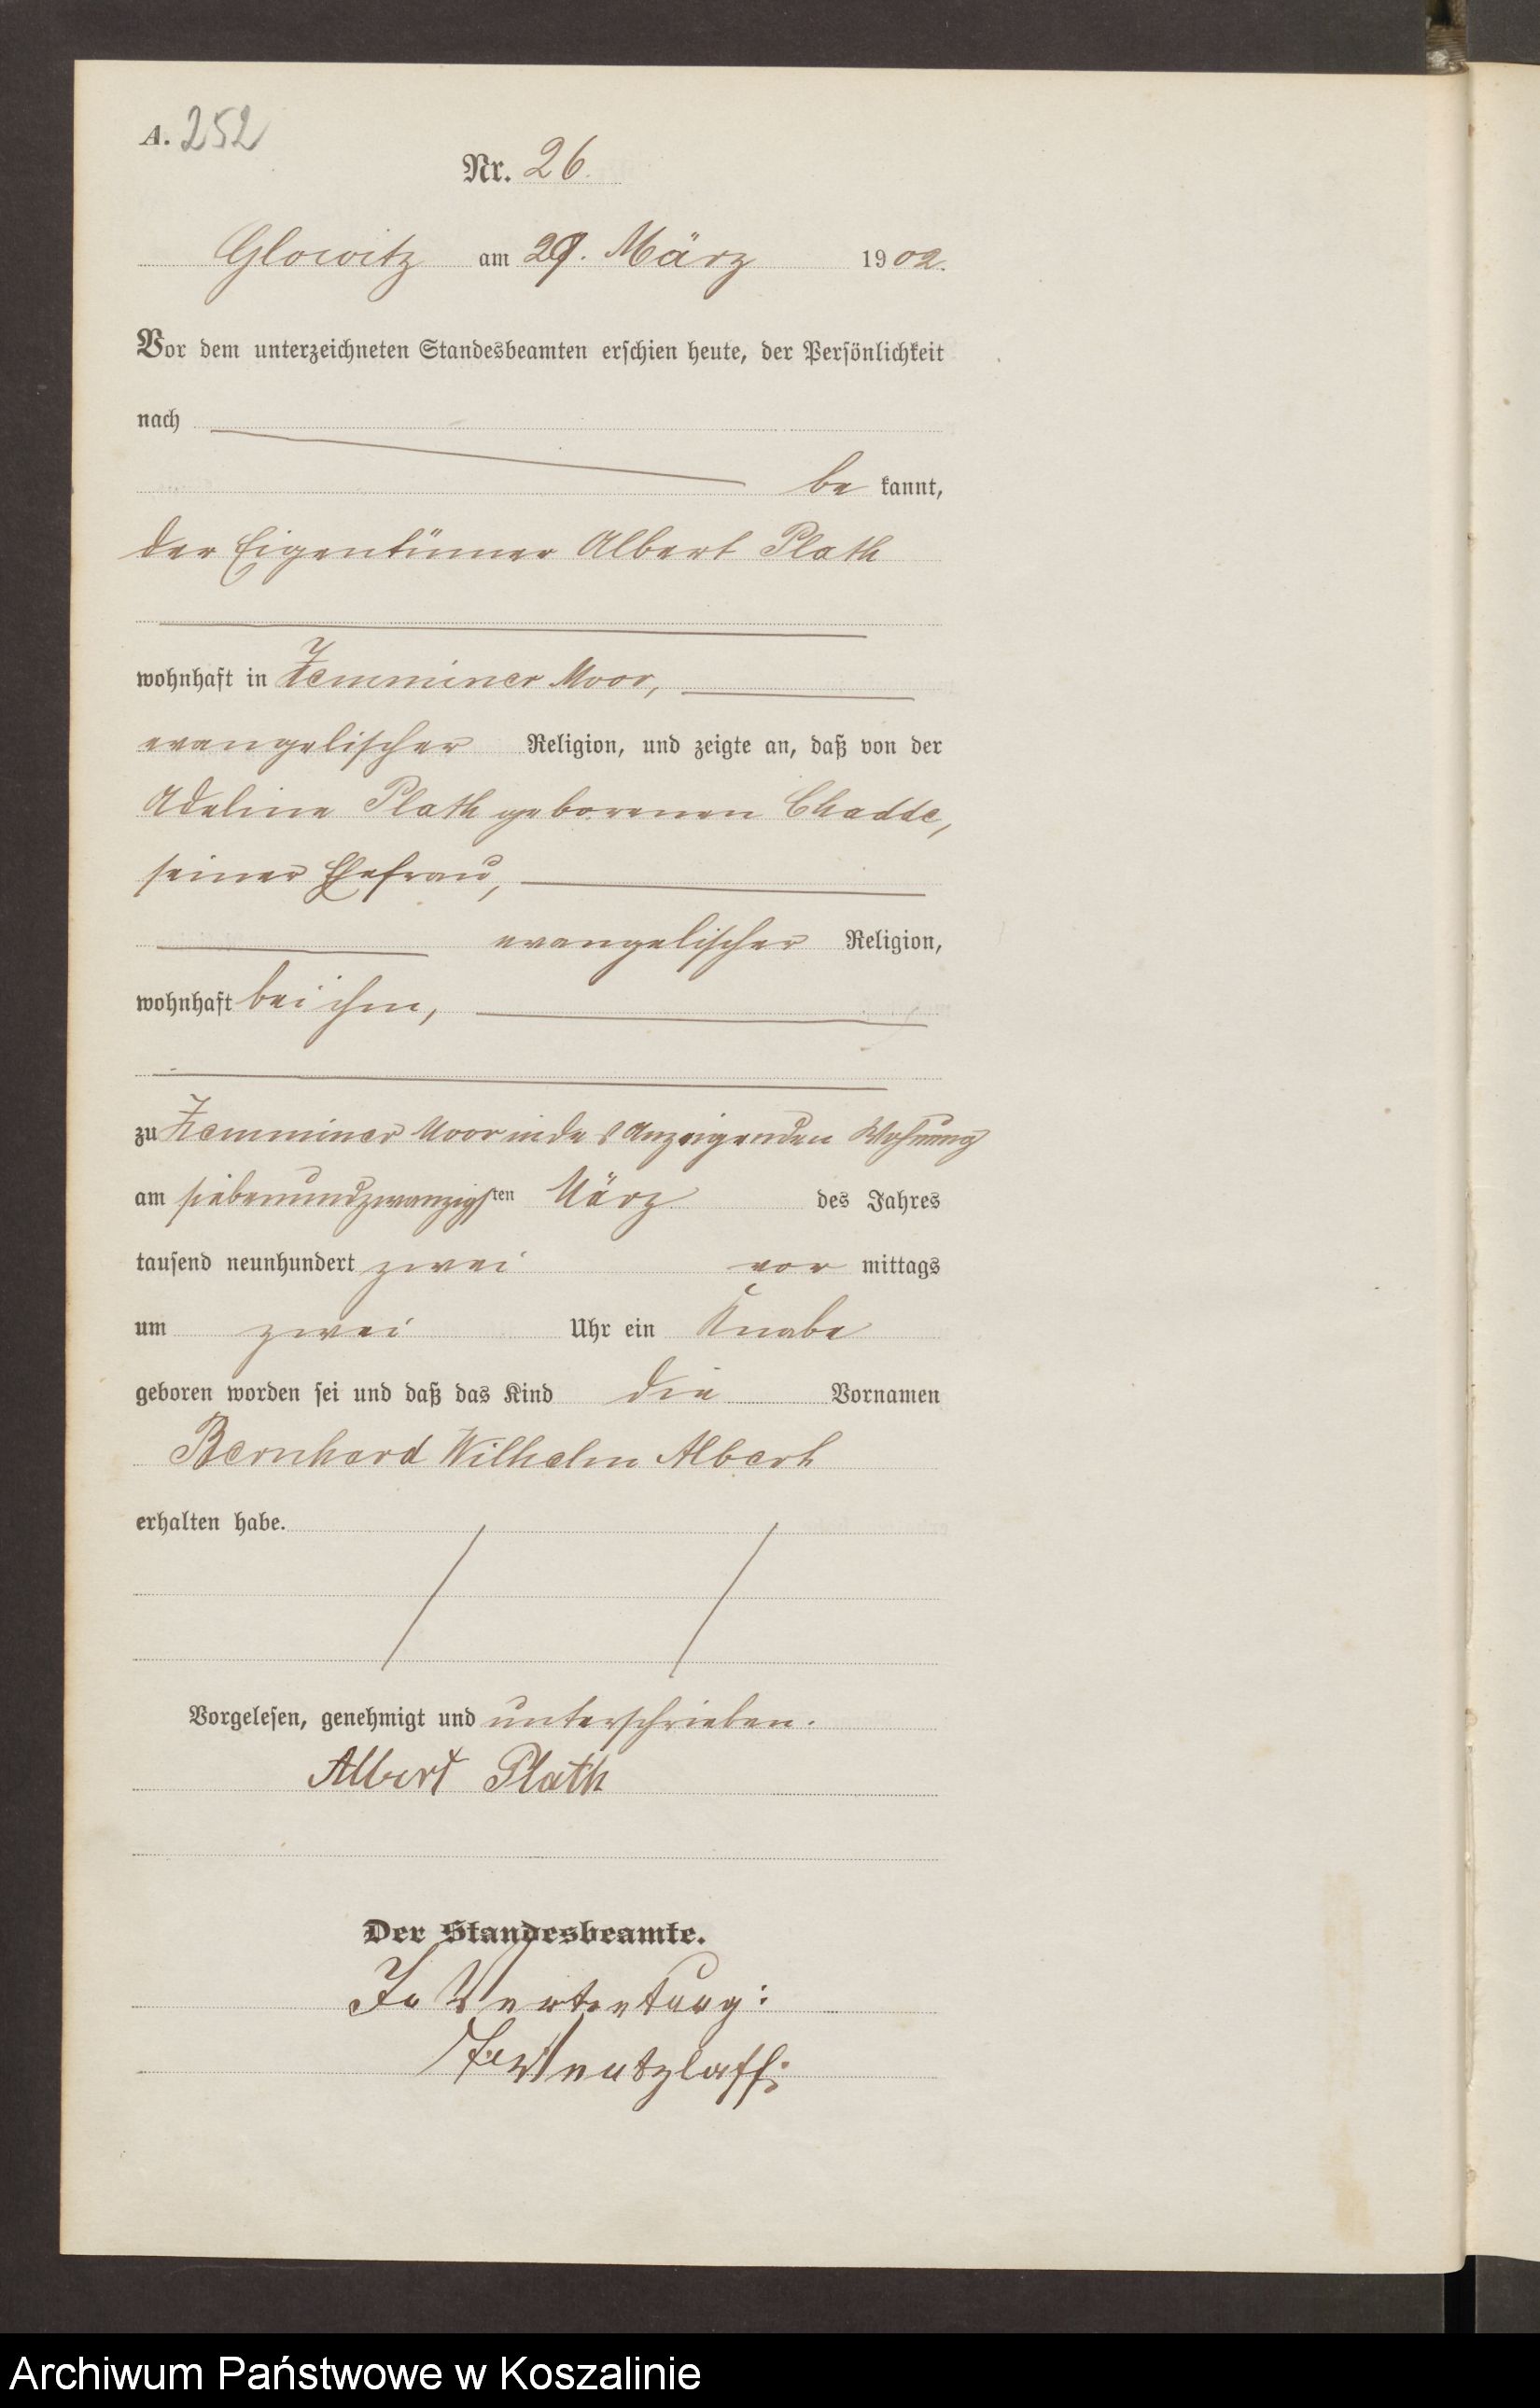 A. 252
Nr. 26.
Glowitz am 29. März 1902.
Vor dem unterzeichneten Standesbeamten erschien heute, der Persönlichkeit
nach
be kannt,
der Eigentümer Albert Plath
wohnhaft in Zemminer Moor,
evangelischer Religion, und zeigte an, daß von der
Adeline Plath geborenen Chadde,
seiner Ehefrau,
evangelischer Religion,
wohnhaft bei ihm,
zu Zemminer Moor in des Anzeigenden Wohnung
am siebenundzwanzigsten März des Jahres
tausend neunhundert zwei vor mittags
um zwei Uhr ein Knabe
geboren worden sei und daß das Kind die Vornamen
Bernhard Wilhelm Albert
erhalten habe.
Vorgelesen, genehmigt und unterschrieben.
Albert Plath
Der Standesbeamte.
In Vertretung:
Archiwum Państwowe w Koszalinie